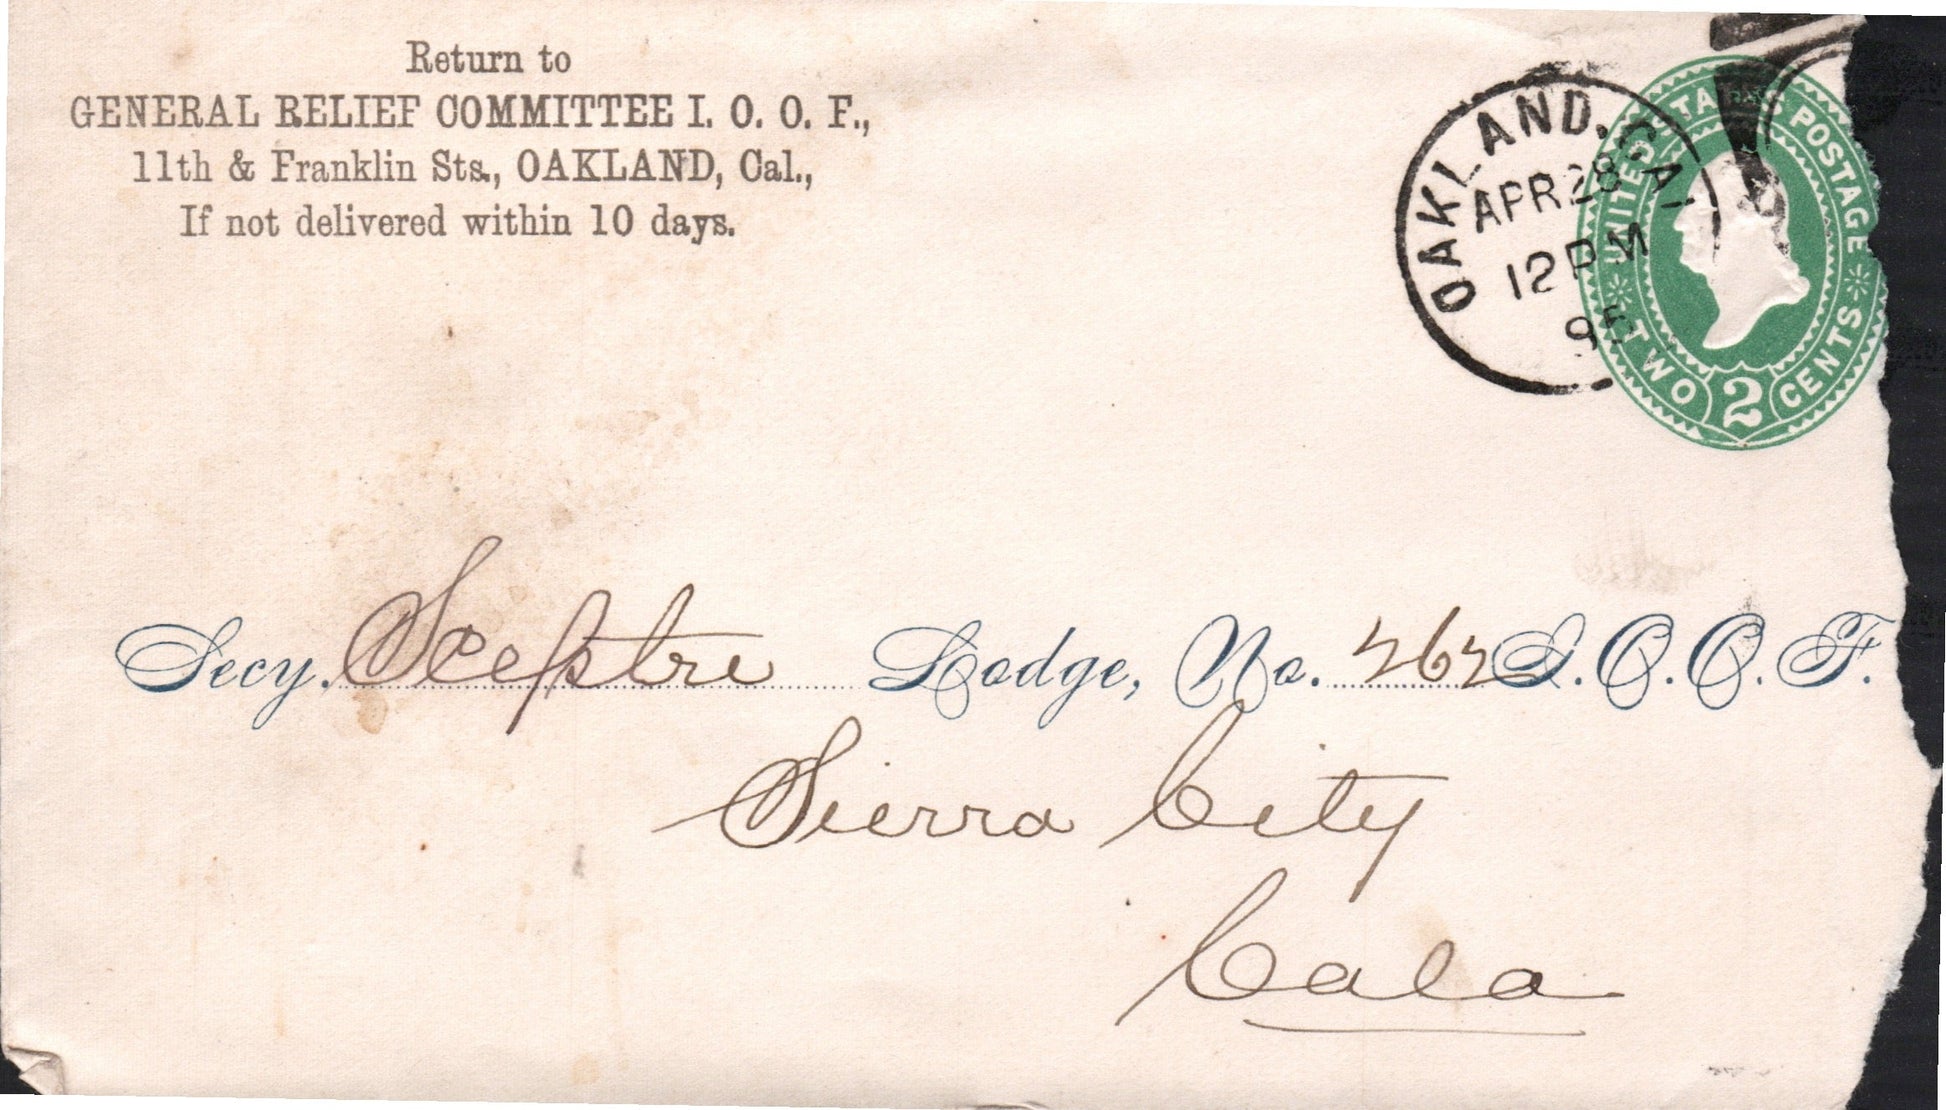 Return to
GENERAL RELIEF COMMITTEE I. O. O. F.,
11th & Franklin Sts., OAKLAND, Cal.,
If not delivered within 10 days.
OAKLAND, CAL
APR 28
12 PM
UNITED STATES POSTAGE
TWO 2 CENTS
Secy. Sceptre Lodge, No. 262 I. O. O. F.
Sierra City
Cala